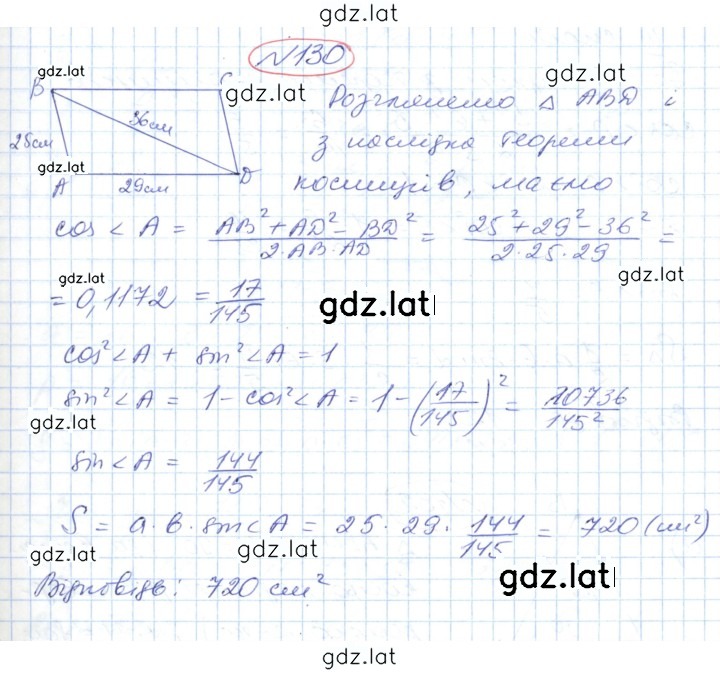 gdz.lat
№130
gdz.lat
B C
gdz.lat
36см
25см
gdz.lat
A 29см D
Розглянемо Δ ABD і
з наслідка теореми
косинусів, маємо
cos < A = AB² + AD² - BD² / 2·AB·AD = 25² + 29² - 36² / 2·25·29 =
gdz.lat
gdz.lat
= 0,1172 = 17/145
gdz.lat
cos² < A + sin² < A = 1
sin² < A = 1 - cos² < A = 1 - (17/145)² = 20736/145²
gdz.lat
sin < A = 144/145
S = a·b·sin < A = 25·29·144/145 = 720 (см²)
gdz.lat
gdz.lat
Відповідь: 720 см²
gdz.lat
gdz.lat